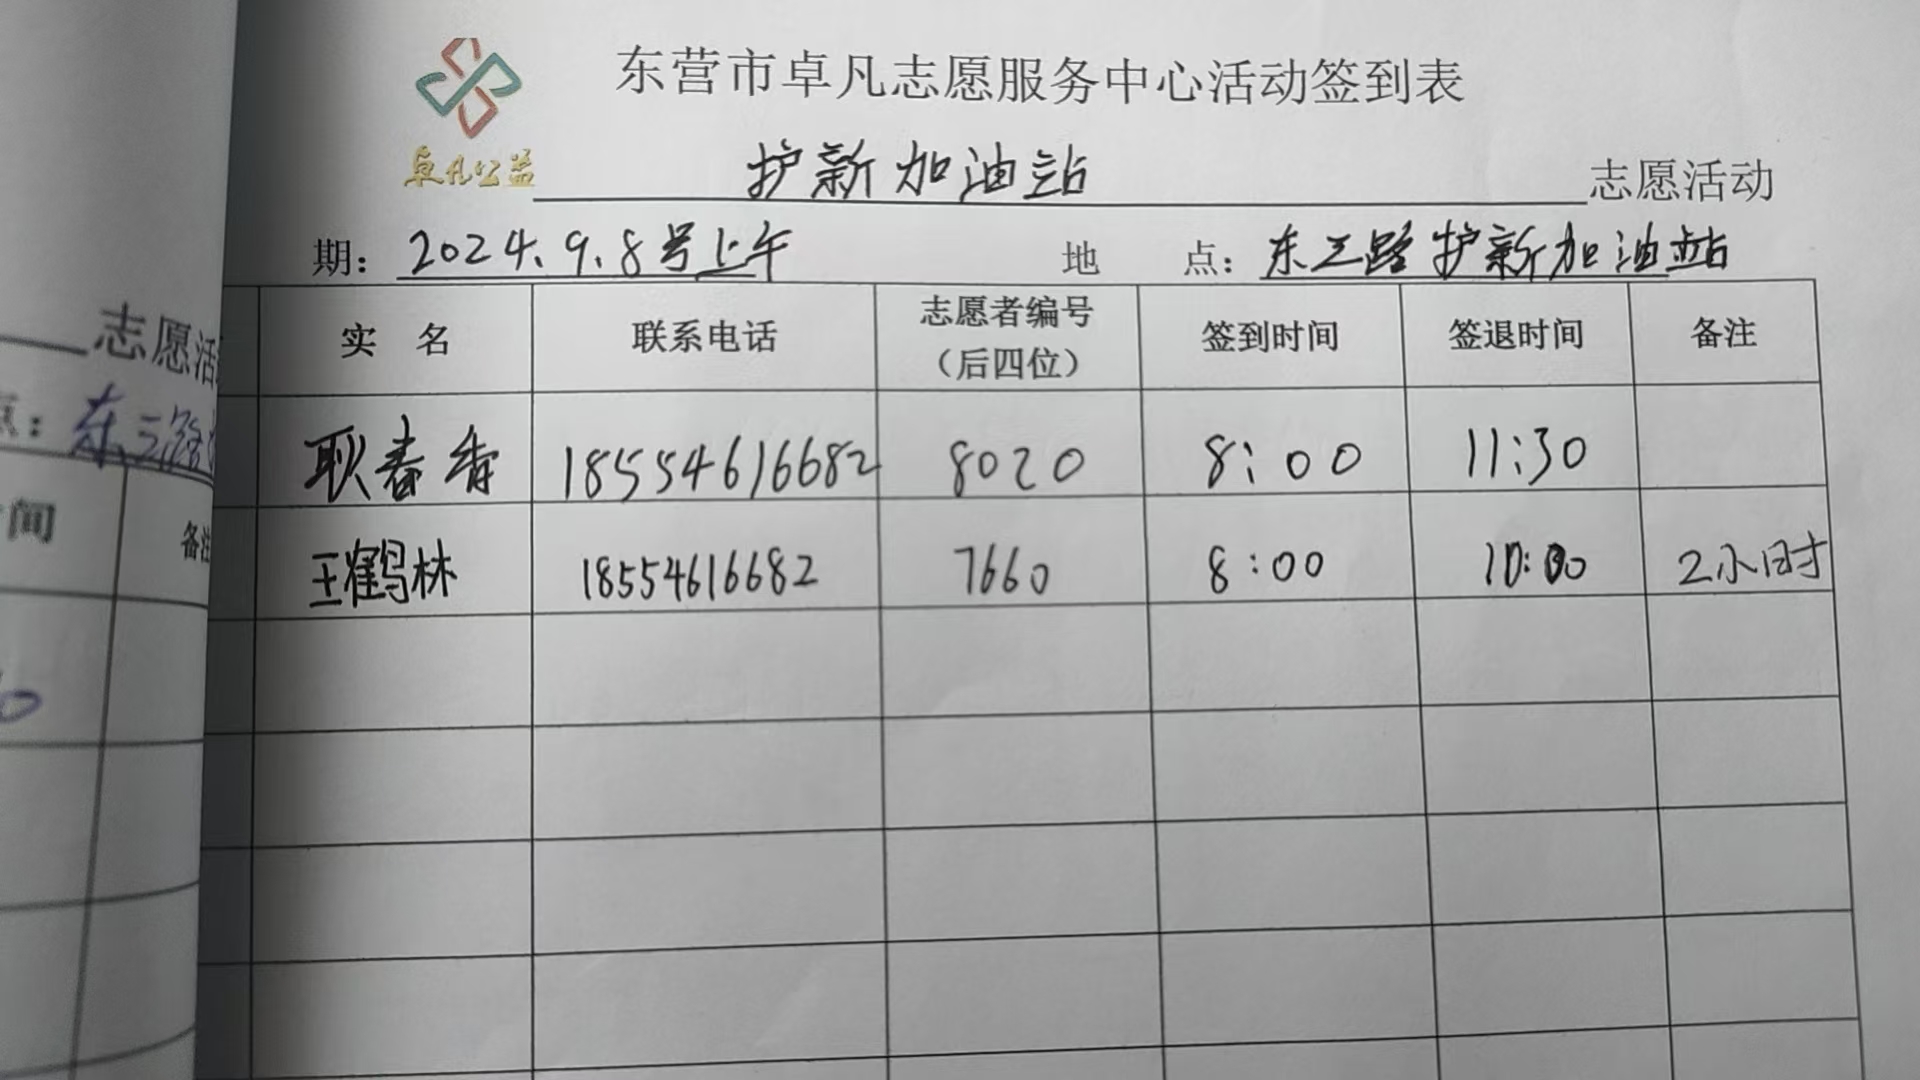 东营市卓凡志愿服务中心活动签到表
卓凡公益
护新加油站 志愿活动
期：2024.9.8号上午 地 点：东三路护新加油站
实 名 联系电话 志愿者编号（后四位） 签到时间 签退时间 备注
耿春香 18554616682 8020 8:00 11:30
王鹤林 18554616682 7660 8:00 10:00 2小时
志愿活
点：东三路
间 备注